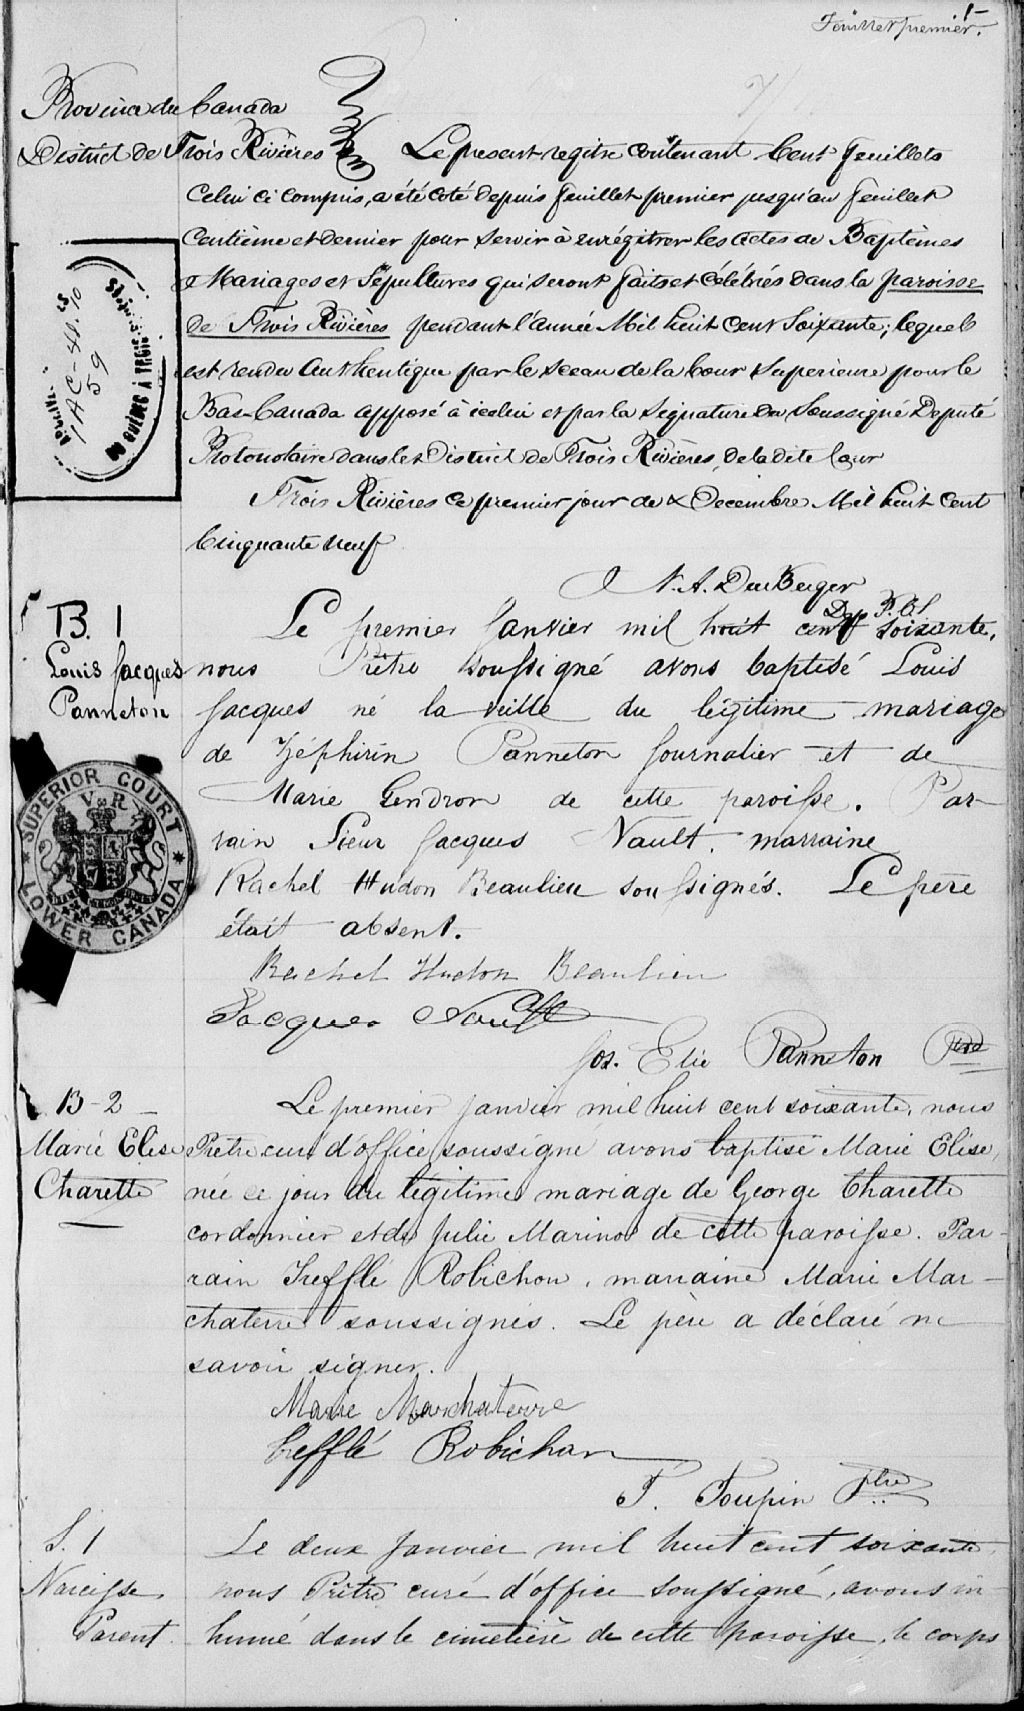 1
Feuillet premier.
Province du Canada
District de Trois Rivières
Le present regitre contenant Cent feuillets
Celui ci compris, a été coté depuis feuillet premier jusqu'au feuillet
Centième et dernier pour servir à enrégitrer les actes de Baptêmes
Mariages et Sépultures qui seront faits et célébrés dans la paroisse
de Trois Rivières pendant l'année Mil huit Cent Soixante; lequel
est rendu Authentique par le Sceau de la Cour Superieure pour le
Bas-Canada apposé à icelui et par la Signature du Soussigné Deputé
Protonotaire dans le District de Trois Rivières, de la dite Cour
Trois Rivières ce premier jour de Decembre Mil huit cent
Cinquante neuf
B. 1
Louis Jacques
Panneton
Le premier Janvier mil huit cent soixante,
nous Prêtre soussigné avons baptisé Louis
Jacques né la veille du légitime mariage
de Zéphirin Panneton Journalier et de
Marie Gendron de cette paroisse. Par-
rain Sieur Jacques Nault, marraine
Rachel Hudon Beaulieu soussignés. Le père
était absent.
SUPERIOR COURT
V R
LOWER CANADA
Rachel Hudon Beaulieu
Jacques Nault
Jos. Elie Panneton Ptre
B-2
Marie Elise
Charette
Le premier janvier mil huit cent soixante, nous
Prêtre curé d'office soussigné avons baptisé Marie Elise,
née ce jour du légitime mariage de George Charette
cordonnier et de Julie Marinot de cette paroisse. Par-
rain Trefflé Robichon, marraine Marie Mar-
chaterre soussignés. Le père a déclaré ne
savoir signer.
Marie Marchaterre
Trefflé Robichon
P. Toupin Ptre
S. 1
Narcisse
Parent
Le deux Janvier mil huit cent soixante
nous Prêtre curé d'office soussigné, avons in-
humé dans le cimetière de cette paroisse, le corps